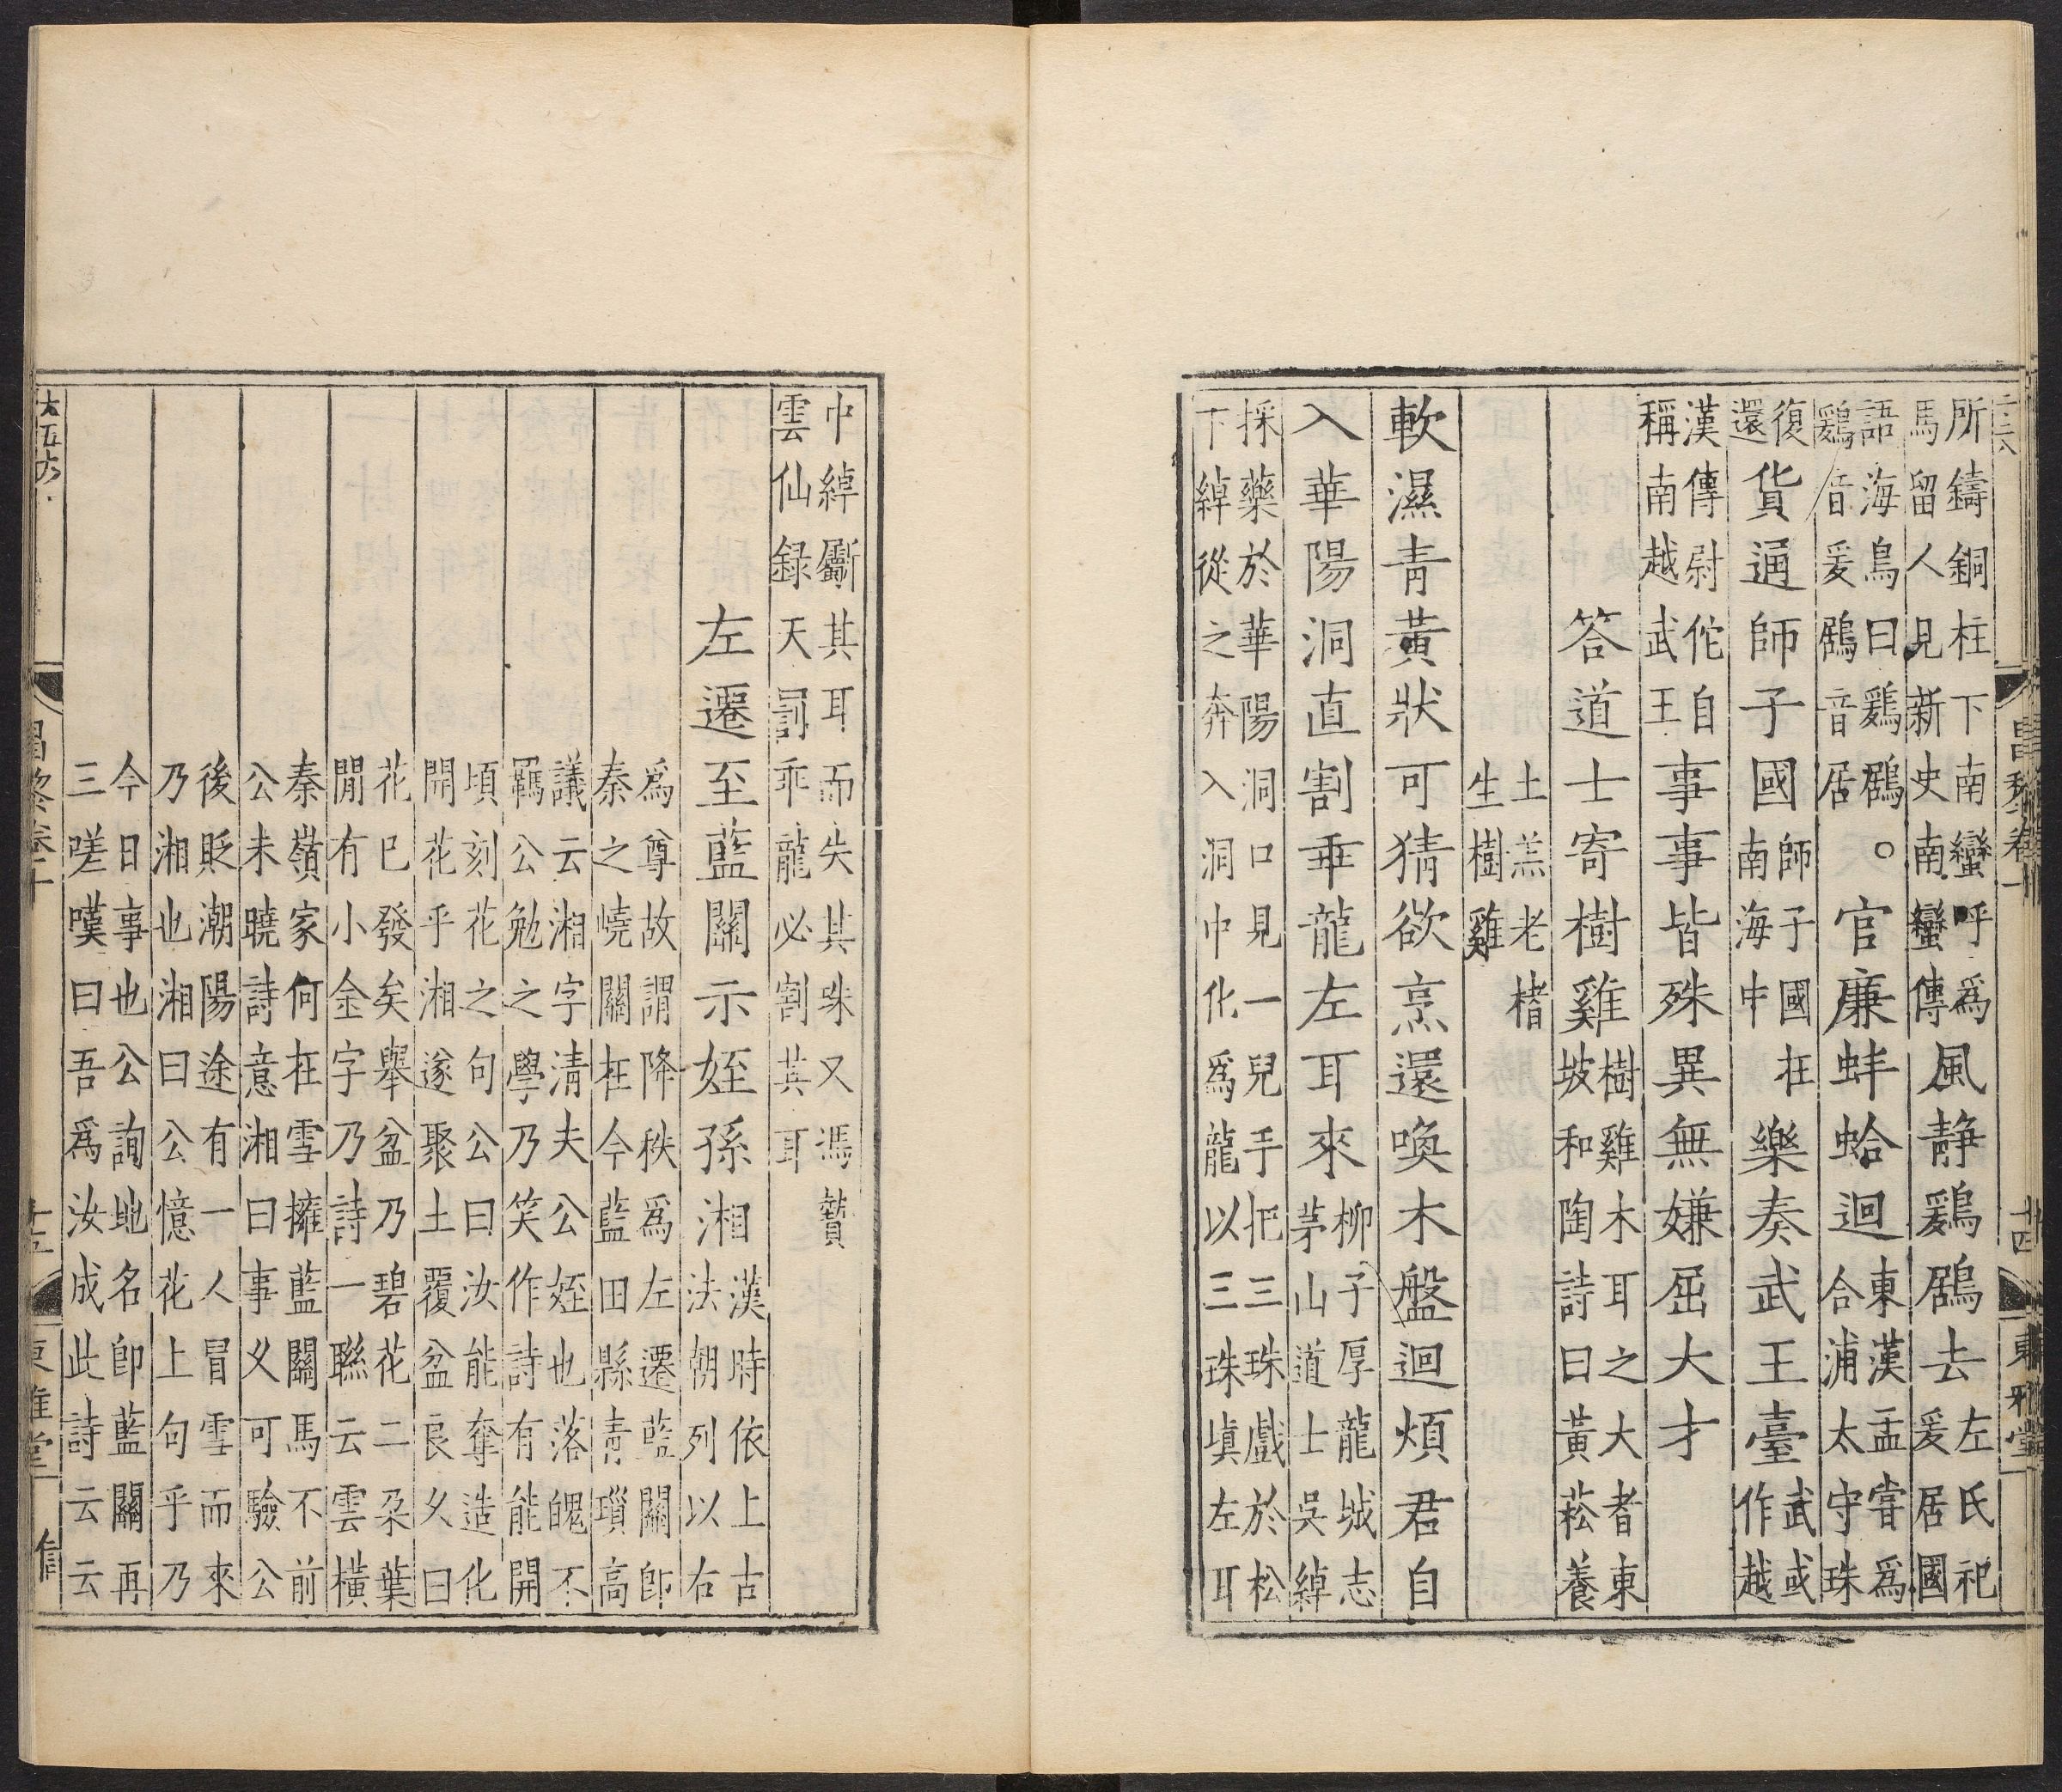 所鑄銅柱下南蠻呼爲
馬留人見新史南蠻傳
風靜鷄鶋去
左氏祀
爰居國
語海鳥曰鷄鶋。
鷄音爰鶋音居
官廉蚌蛤迴
東漢孟嘗爲
合浦太守珠
復
還
貨通師子國
師子國在
南海中
樂奏武王臺
武或
作越
漢傳尉佗自
稱南越武王
事事皆殊異無嫌屈大才
答道士寄樹雞
樹雞木耳之大者東
坡和陶詩曰黃菘養
土羔老楮
生樹雞
軟濕青黃狀可猜欲烹還喚木盤迴煩君自
入華陽洞直割乖龍左耳來
柳子厚龍城志
茅山道士吳綽
採藥於華陽洞口見一兒手把三珠戲於松
下綽從之奔入洞中化爲龍以三珠塡左耳
昌黎卷十
十四
東雅堂
中綽斸其耳而失其珠又馮贄
雲仙録天罰乖龍必割其耳
左遷至藍關示姪孫湘
漢時依上古
法朝列以右
爲尊故謂降秩爲左遷藍關卽
秦之嶢關在今藍田縣青瑣高
議云湘字清夫公姪也落魄不
羈公勉之學乃笑作詩有能開
頃刻花之句公曰汝能奪造化
開花乎湘遂聚土覆盆良久曰
花已發矣舉盆乃碧花二朶葉
閒有小金字乃詩一聯云雲橫
秦嶺家何在雪擁藍關馬不前
公未曉詩意湘曰事乆可驗公
後貶潮陽途有一人冒雪而來
乃湘也湘曰公憶花上句乎乃
今日事也公詢地名卽藍關再
三嗟嘆曰吾爲汝成此詩云云
昌黎卷十
十五
東雅堂